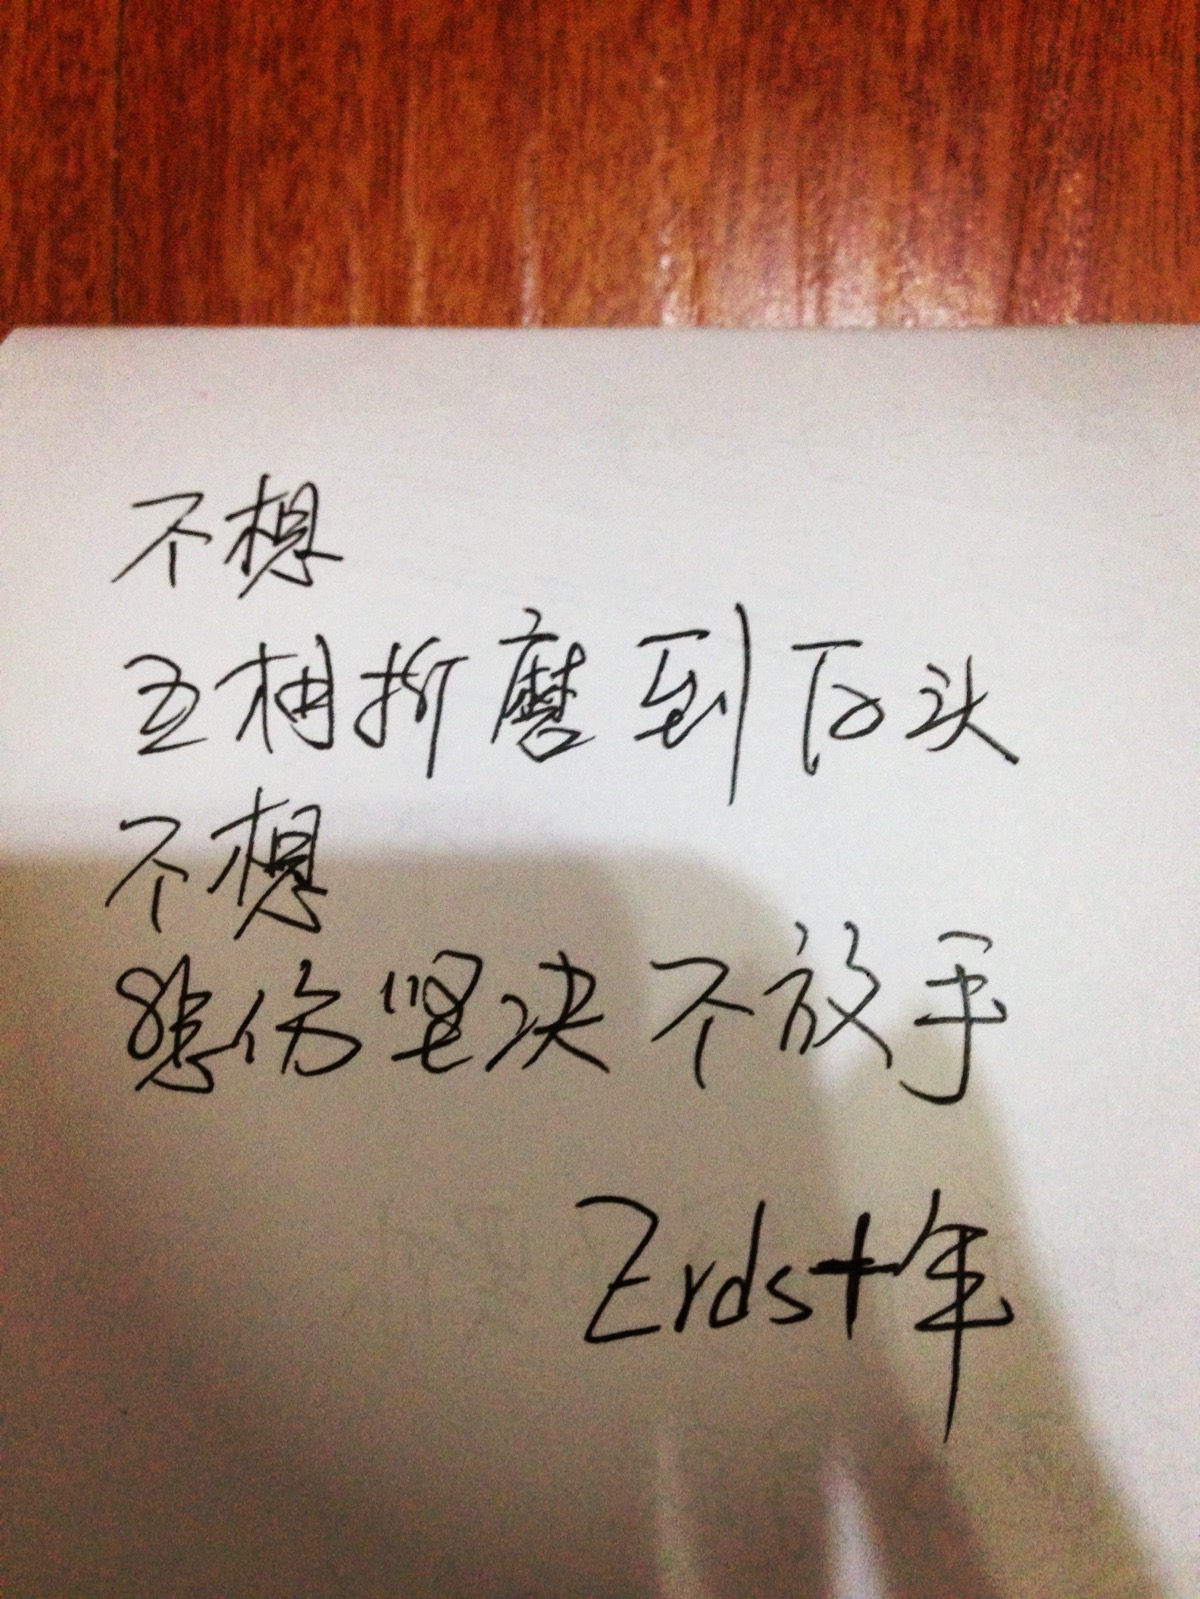 不想
互相折磨到白头
不想
悲伤坚决不放手
Zrds十年